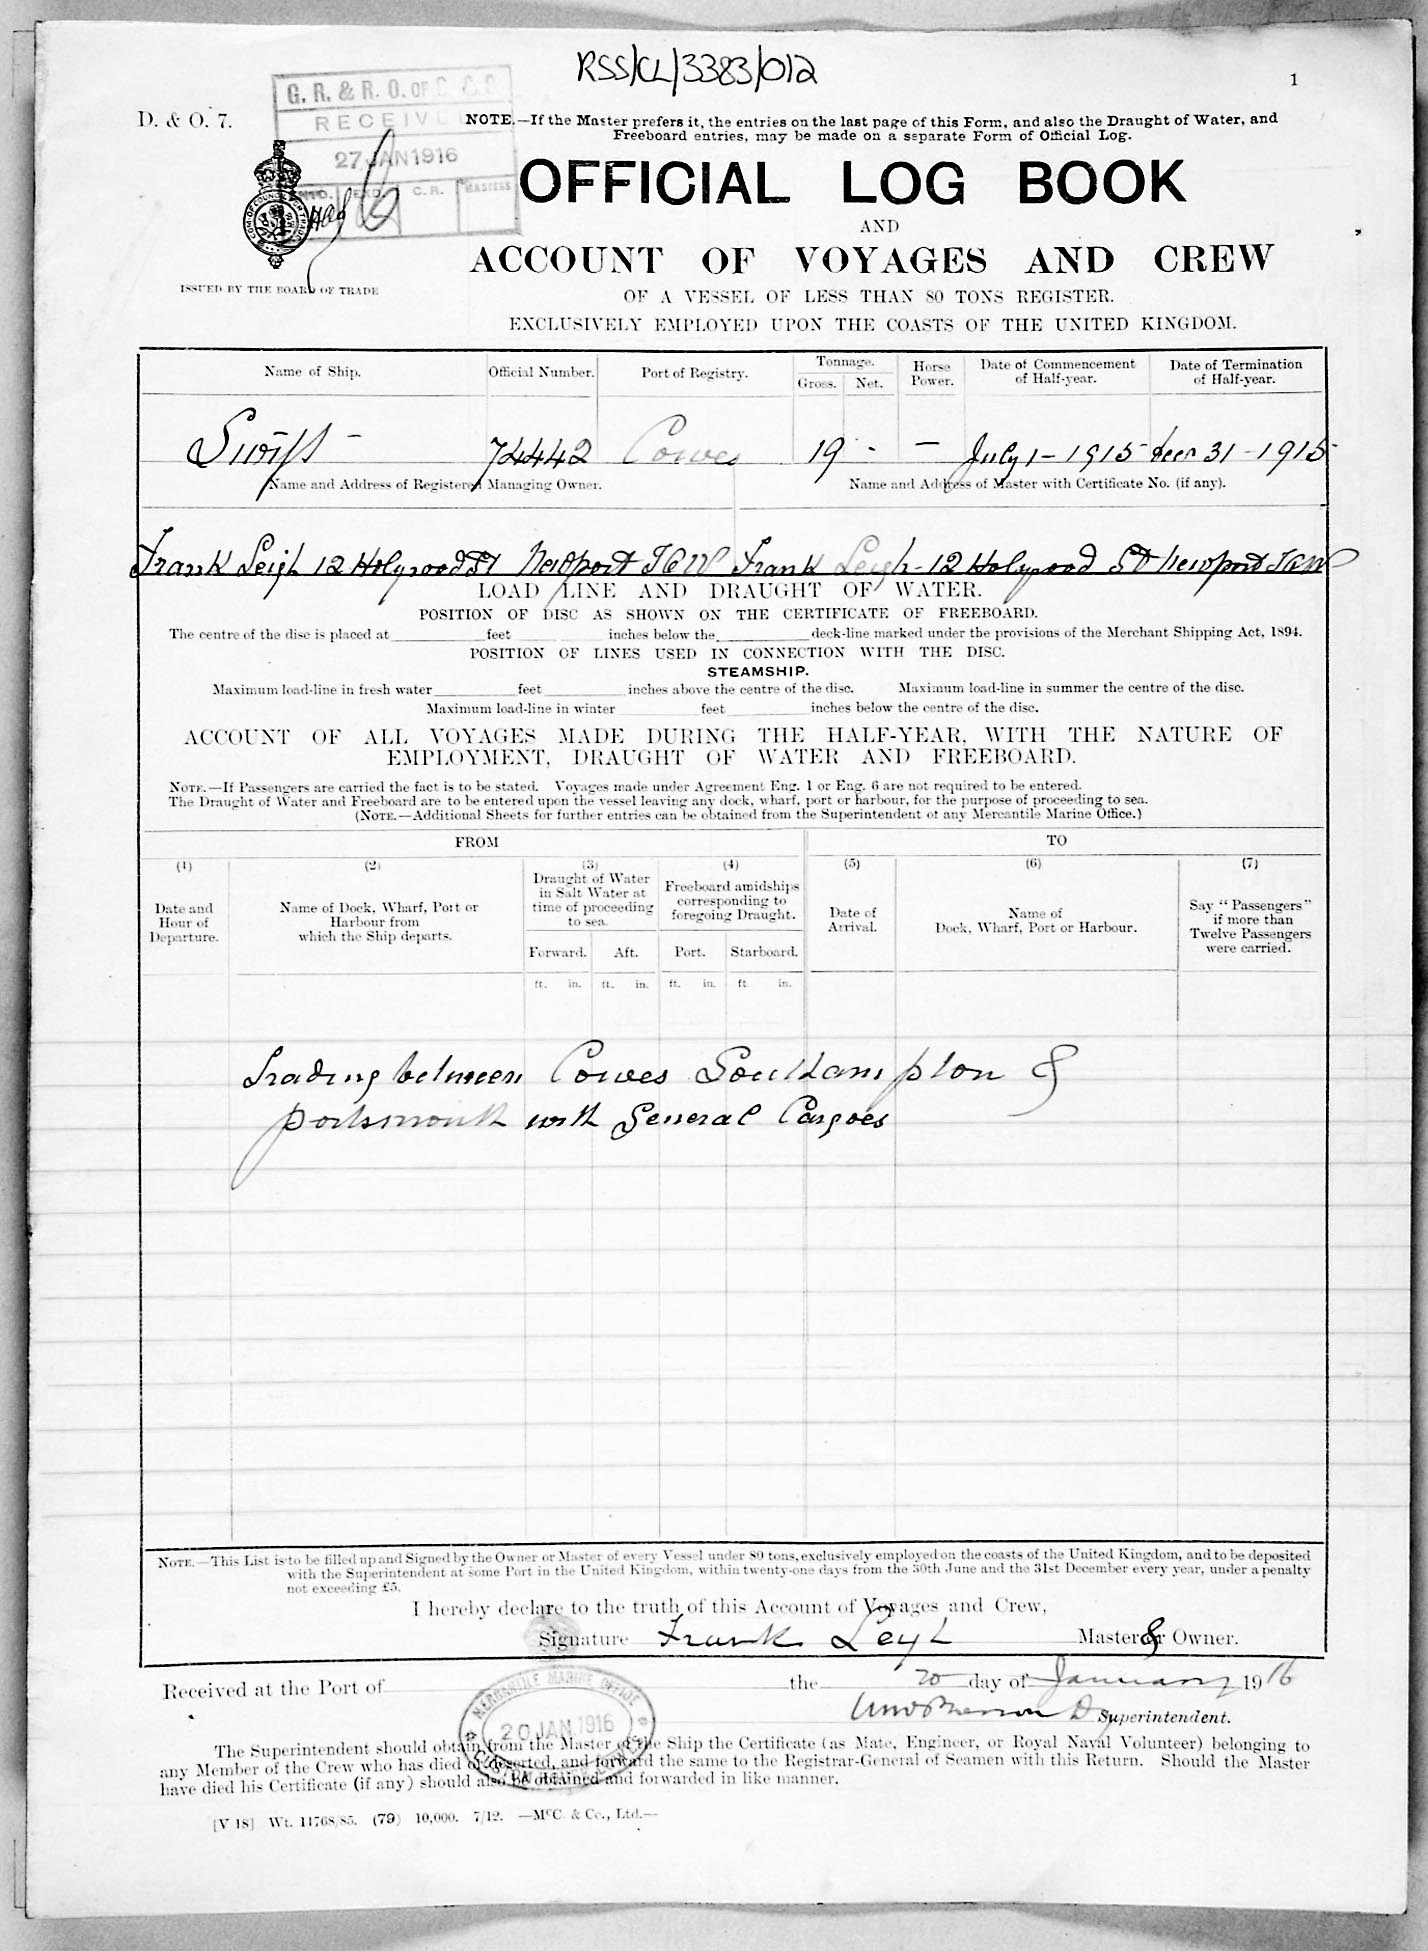 RSS/CL/3383/012
1
G. R. & R. O. OF
RECEIVE
27 JAN 1916
C.R.
MASTERS
D. & O. 7.
NOTE.—If the Master prefers it, the entries on the last page of this Form, and also the Draught of Water, and
Freeboard entries, may be made on a separate Form of Official Log.
OFFICIAL LOG BOOK
AND
ACCOUNT OF VOYAGES AND CREW
ISSUED BY THE BOARD OF TRADE
OF A VESSEL OF LESS THAN 80 TONS REGISTER.
EXCLUSIVELY EMPLOYED UPON THE COASTS OF THE UNITED KINGDOM.
Name of Ship. Official Number. Port of Registry. Tonnage. Gross. Net. Horse Power. Date of Commencement of Half-year. Date of Termination of Half-year.
Swift - 74442 Cowes 19 - - July 1 - 1915 Decr 31 - 1915
Name and Address of Registered Managing Owner. Name and Address of Master with Certificate No. (if any).
Frank Leigh 12 Holyrood St Newport I&W Frank Leigh - 12 Holyrood St Newport I&W
LOAD LINE AND DRAUGHT OF WATER.
POSITION OF DISC AS SHOWN ON THE CERTIFICATE OF FREEBOARD.
The centre of the disc is placed at feet inches below the deck-line marked under the provisions of the Merchant Shipping Act, 1894.
POSITION OF LINES USED IN CONNECTION WITH THE DISC.
STEAMSHIP.
Maximum load-line in fresh water feet inches above the centre of the disc. Maximum load-line in summer the centre of the disc.
Maximum load-line in winter feet inches below the centre of the disc.
ACCOUNT OF ALL VOYAGES MADE DURING THE HALF-YEAR, WITH THE NATURE OF
EMPLOYMENT, DRAUGHT OF WATER AND FREEBOARD.
NOTE.—If Passengers are carried the fact is to be stated. Voyages made under Agreement Eng. 1 or Eng. 6 are not required to be entered.
The Draught of Water and Freeboard are to be entered upon the vessel leaving any dock, wharf, port or harbour, for the purpose of proceeding to sea.
(NOTE.—Additional Sheets for further entries can be obtained from the Superintendent of any Mercantile Marine Office.)
FROM TO
(1) (2) (3) (4) (5) (6) (7)
Date and Hour of Departure.
Name of Dock, Wharf, Port or Harbour from which the Ship departs.
Draught of Water in Salt Water at time of proceeding to sea.
Freeboard amidships corresponding to foregoing Draught.
Date of Arrival.
Name of Dock, Wharf, Port or Harbour.
Say "Passengers" if more than Twelve Passengers were carried.
Forward. Aft. Port. Starboard.
ft. in. ft. in. ft. in. ft in.
Trading between Cowes Southampton &
portsmouth with General Cargoes
NOTE.—This List is to be filled up and Signed by the Owner or Master of every Vessel under 80 tons, exclusively employed on the coasts of the United Kingdom, and to be deposited
with the Superintendent at some Port in the United Kingdom, within twenty-one days from the 30th June and the 31st December every year, under a penalty
not exceeding £5.
I hereby declare to the truth of this Account of Voyages and Crew,
Signature Frank Leigh Master & Owner.
Received at the Port of the 20 day of January 1916
Superintendent.
MERCANTILE MARINE OFFICE
20 JAN. 1916
The Superintendent should obtain from the Master of the Ship the Certificate (as Mate, Engineer, or Royal Naval Volunteer) belonging to
any Member of the Crew who has died or deserted, and forward the same to the Registrar-General of Seamen with this Return. Should the Master
have died his Certificate (if any) should also be obtained and forwarded in like manner.
[V 18] Wt. 11768/85. (79) 10,000. 7/12. —McC. & Co., Ltd.—